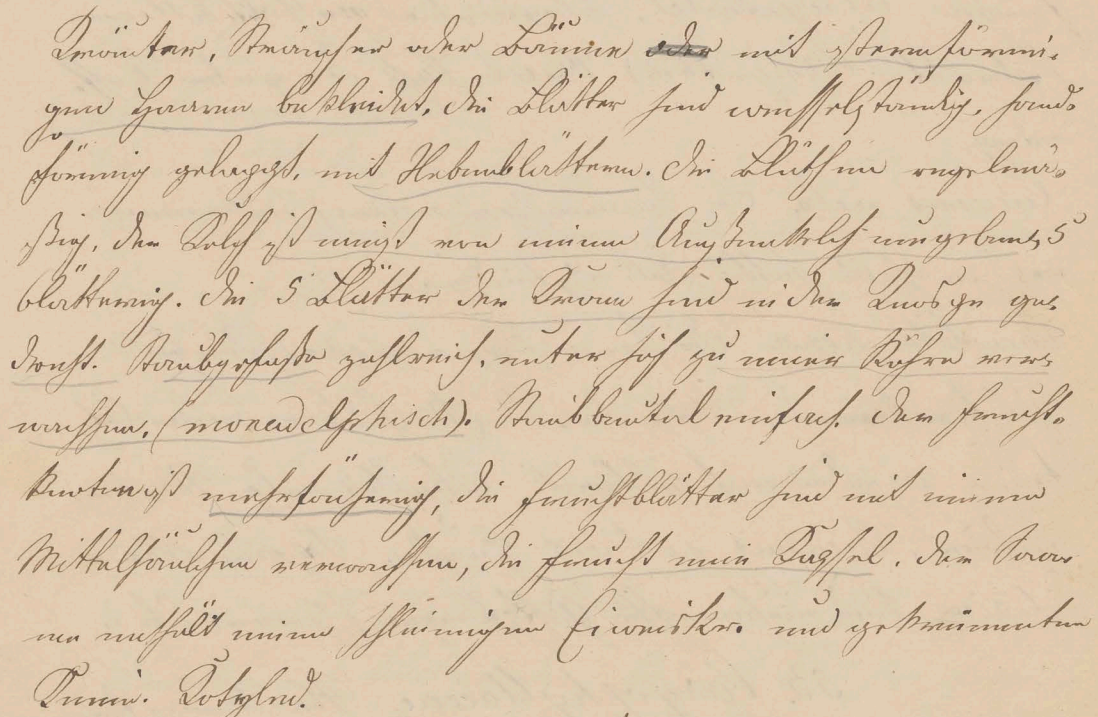 Kräuter, Sträucher oder Bäume oder mit sternförmi-
gen Haaren bekleidet. Die Blätter sind wechselständig, hand-
förmig gelappt, mit Nebenblättern. Die Blüthen regelmä-
ßig, der Kelch ist meist von einem Außenkelch umgeben, 5
blätterig. Die 5 Blätter der Krone sind in der Knospe ge-
dreht. Staubgefäße zahlreich, unter sich zu einer Röhre ver-
wachsen, (monadelphisch). Staubbeutel einfach. Der Frucht-
knoten ist mehrfächerig, die Fruchtblätter sind mit einem
Mittelsäulchen verwachsen, die Frucht eine Kapsel. Der Saa-
me enthält einen schleimigen Eiweiskr. und gekrümmten
Keim. Kotyled.